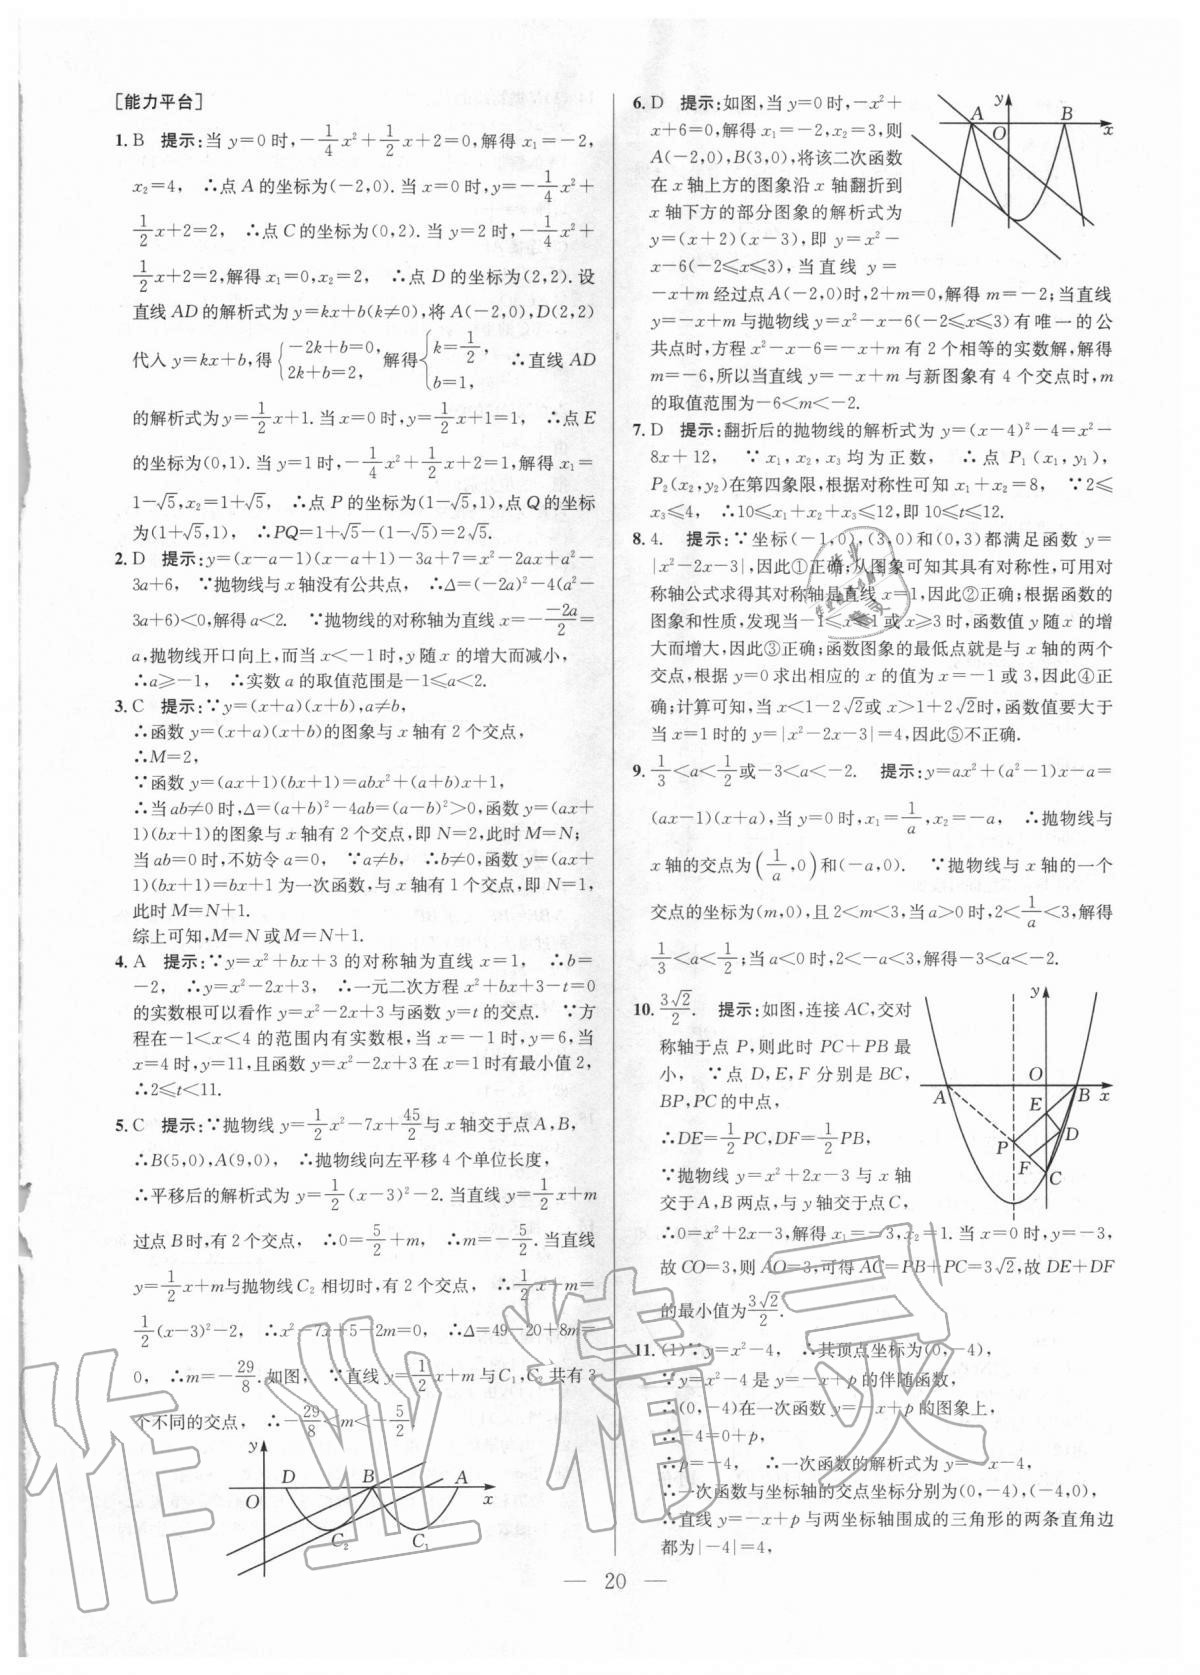 [能力平台]
1. B 提示:当 y=0 时,-1/4x²+1/2x+2=0,解得 x₁=-2,
x₂=4, ∴点 A 的坐标为(-2,0).当 x=0 时,y=-1/4x²+
1/2x+2=2, ∴点 C 的坐标为(0,2).当 y=2 时,-1/4x²+
1/2x+2=2,解得 x₁=0,x₂=2, ∴点 D 的坐标为(2,2).设
直线 AD 的解析式为 y=kx+b(k≠0),将 A(-2,0),D(2,2)
代入 y=kx+b,得{-2k+b=0, 2k+b=2, 解得{k=1/2, b=1, ∴直线 AD
的解析式为 y=1/2x+1.当 x=0 时,y=1/2x+1=1, ∴点 E
的坐标为(0,1).当 y=1 时,-1/4x²+1/2x+2=1,解得 x₁=
1-√5,x₂=1+√5, ∴点 P 的坐标为(1-√5,1),点 Q 的坐标
为(1+√5,1), ∴PQ=1+√5-(1-√5)=2√5.
2. D 提示:y=(x-a-1)(x-a+1)-3a+7=x²-2ax+a²-
3a+6, ∵抛物线与 x 轴没有公共点, ∴Δ=(-2a)²-4(a²-
3a+6)<0,解得 a<2. ∵抛物线的对称轴为直线 x=-(-2a)/2=
a,抛物线开口向上,而当 x<-1 时,y 随 x 的增大而减小,
∴a≥-1, ∴实数 a 的取值范围是-1≤a<2.
3. C 提示:∵y=(x+a)(x+b),a≠b,
∴函数 y=(x+a)(x+b)的图象与 x 轴有 2 个交点,
∴M=2,
∵函数 y=(ax+1)(bx+1)=abx²+(a+b)x+1,
∴当 ab≠0 时,Δ=(a+b)²-4ab=(a-b)²>0,函数 y=(ax+
1)(bx+1)的图象与 x 轴有 2 个交点,即 N=2,此时 M=N;
当 ab=0 时,不妨令 a=0, ∵a≠b, ∴b≠0,函数 y=(ax+
1)(bx+1)=bx+1 为一次函数,与 x 轴有 1 个交点,即 N=1,
此时 M=N+1.
综上可知,M=N 或 M=N+1.
4. A 提示:∵y=x²+bx+3 的对称轴为直线 x=1, ∴b=
-2, ∴y=x²-2x+3, ∴一元二次方程 x²+bx+3-t=0
的实数根可以看作 y=x²-2x+3 与函数 y=t 的交点. ∵方
程在-1<x<4 的范围内有实数根,当 x=-1 时,y=6,当
x=4 时,y=11,且函数 y=x²-2x+3 在 x=1 时有最小值 2,
∴2≤t<11.
5. C 提示:∵抛物线 y=1/2x²-7x+45/2与 x 轴交于点 A,B,
∴B(5,0),A(9,0), ∴抛物线向左平移 4 个单位长度,
∴平移后的解析式为 y=1/2(x-3)²-2.当直线 y=1/2x+m
过点 B 时,有 2 个交点, ∴0=5/2+m, ∴m=-5/2.当直线
y=1/2x+m与抛物线 C₂ 相切时,有 2 个交点, ∴1/2x+m=
1/2(x-3)²-2, ∴x²-7x+5-2m=0, ∴Δ=49-20+8m=
0, ∴m=-29/8.如图, ∵直线 y=1/2x+m 与 C₁,C₂ 共有 3
个不同的交点, ∴-29/8<m<-5/2.
y
D B A
O x
C₂ C₁
6. D 提示:如图,当 y=0 时,-x²+
x+6=0,解得 x₁=-2,x₂=3,则
A(-2,0),B(3,0),将该二次函数
在 x 轴上方的图象沿 x 轴翻折到
x 轴下方的部分图象的解析式为
y=(x+2)(x-3),即 y=x²-
x-6(-2≤x≤3),当直线 y=
-x+m 经过点 A(-2,0)时,2+m=0,解得 m=-2;当直线
y=-x+m 与抛物线 y=x²-x-6(-2≤x≤3)有唯一的公
共点时,方程 x²-x-6=-x+m 有 2 个相等的实数解,解得
m=-6,所以当直线 y=-x+m 与新图象有 4 个交点时,m
的取值范围为-6<m<-2.
y
A B
O x
7. D 提示:翻折后的抛物线的解析式为 y=(x-4)²-4=x²-
8x+12, ∵x₁,x₂,x₃ 均为正数, ∴点 P₁(x₁,y₁),
P₂(x₂,y₂)在第四象限,根据对称性可知 x₁+x₂=8, ∵2≤
x₃≤4, ∴10≤x₁+x₂+x₃≤12,即 10≤t≤12.
8. 4. 提示:∵坐标(-1,0),(3,0)和(0,3)都满足函数 y=
|x²-2x-3|,因此①正确;从图象可知其具有对称性,可用对
称轴公式求得其对称轴是直线 x=1,因此②正确;根据函数的
图象和性质,发现当-1≤x≤1 或 x≥3 时,函数值 y 随 x 的增
大而增大,因此③正确;函数图象的最低点就是与 x 轴的两个
交点,根据 y=0 求出相应的 x 的值为 x=-1 或 3,因此④正
确;计算可知,当 x<1-2√2或 x>1+2√2时,函数值要大于
当 x=1 时的 y=|x²-2x-3|=4,因此⑤不正确.
9. 1/3<a<1/2或-3<a<-2. 提示:y=ax²+(a²-1)x-a=
(ax-1)(x+a),当 y=0 时,x₁=1/a,x₂=-a, ∴抛物线与
x 轴的交点为(1/a,0)和(-a,0). ∵抛物线与 x 轴的一个
交点的坐标为(m,0),且 2<m<3,当 a>0 时,2<1/a<3,解得
1/3<a<1/2;当 a<0 时,2<-a<3,解得-3<a<-2.
10. 3√2/2. 提示:如图,连接 AC,交对
称轴于点 P,则此时 PC+PB 最
小, ∵点 D,E,F 分别是 BC,
BP,PC 的中点,
∴DE=1/2PC,DF=1/2PB,
∵抛物线 y=x²+2x-3 与 x 轴
交于 A,B 两点,与 y 轴交于点 C,
∴0=x²+2x-3,解得 x₁=-3,x₂=1.当 x=0 时,y=-3,
故 CO=3,则 AO=3,可得 AC=PB+PC=3√2,故 DE+DF
的最小值为3√2/2.
y
O
A B x
E
P D
F
C
11. (1)∵y=x²-4, ∴其顶点坐标为(0,-4),
∵y=x²-4 是 y=-x+p 的伴随函数,
∴(0,-4)在一次函数 y=-x+p 的图象上,
∴-4=0+p,
∴p=-4, ∴一次函数的解析式为 y=-x-4,
∴一次函数与坐标轴的交点坐标分别为(0,-4),(-4,0),
∴直线 y=-x+p 与两坐标轴围成的三角形的两条直角边
都为|-4|=4,
— 20 —
作业精灵